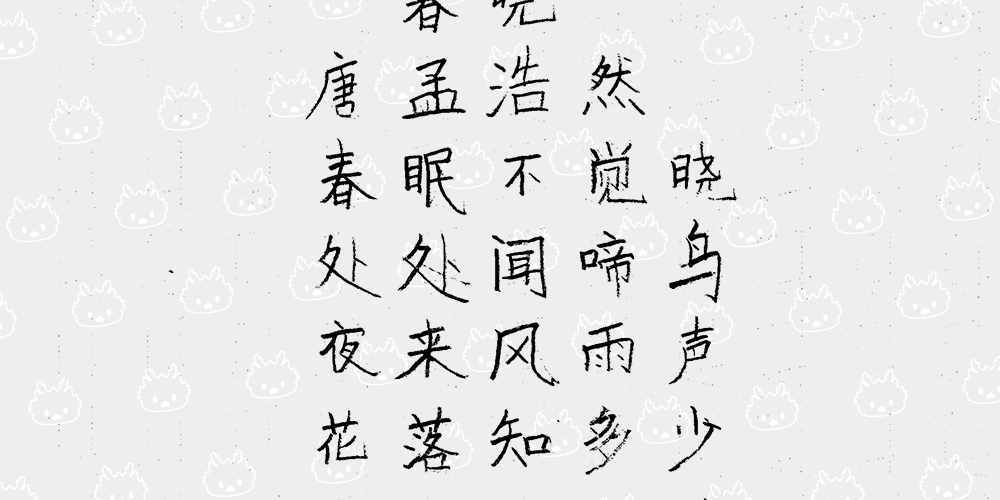 春晓
唐孟浩然
春眠不觉晓
处处闻啼鸟
夜来风雨声
花落知多少